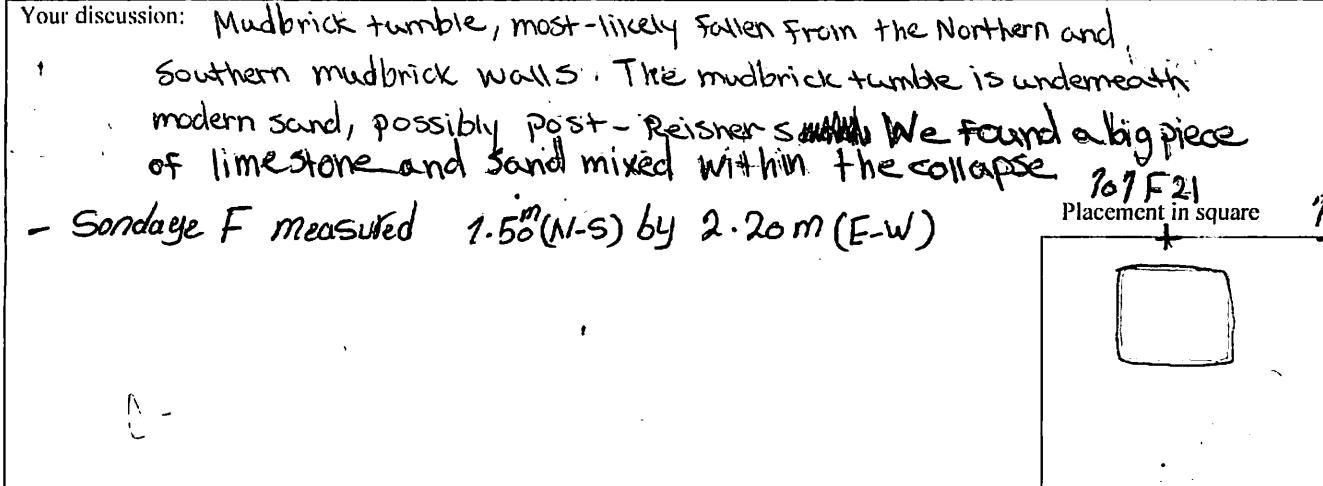 Your discussion: Mudbrick tumble, most-likely fallen from the Northern and
Southern mudbrick walls. The mudbrick tumble is underneath
modern sand, possibly post-Reisner s We found a big piece
of limestone and sand mixed within the collapse
- Sondage F measured 1.50m (N-S) by 2.20 m (E-W)
101F21
Placement in square